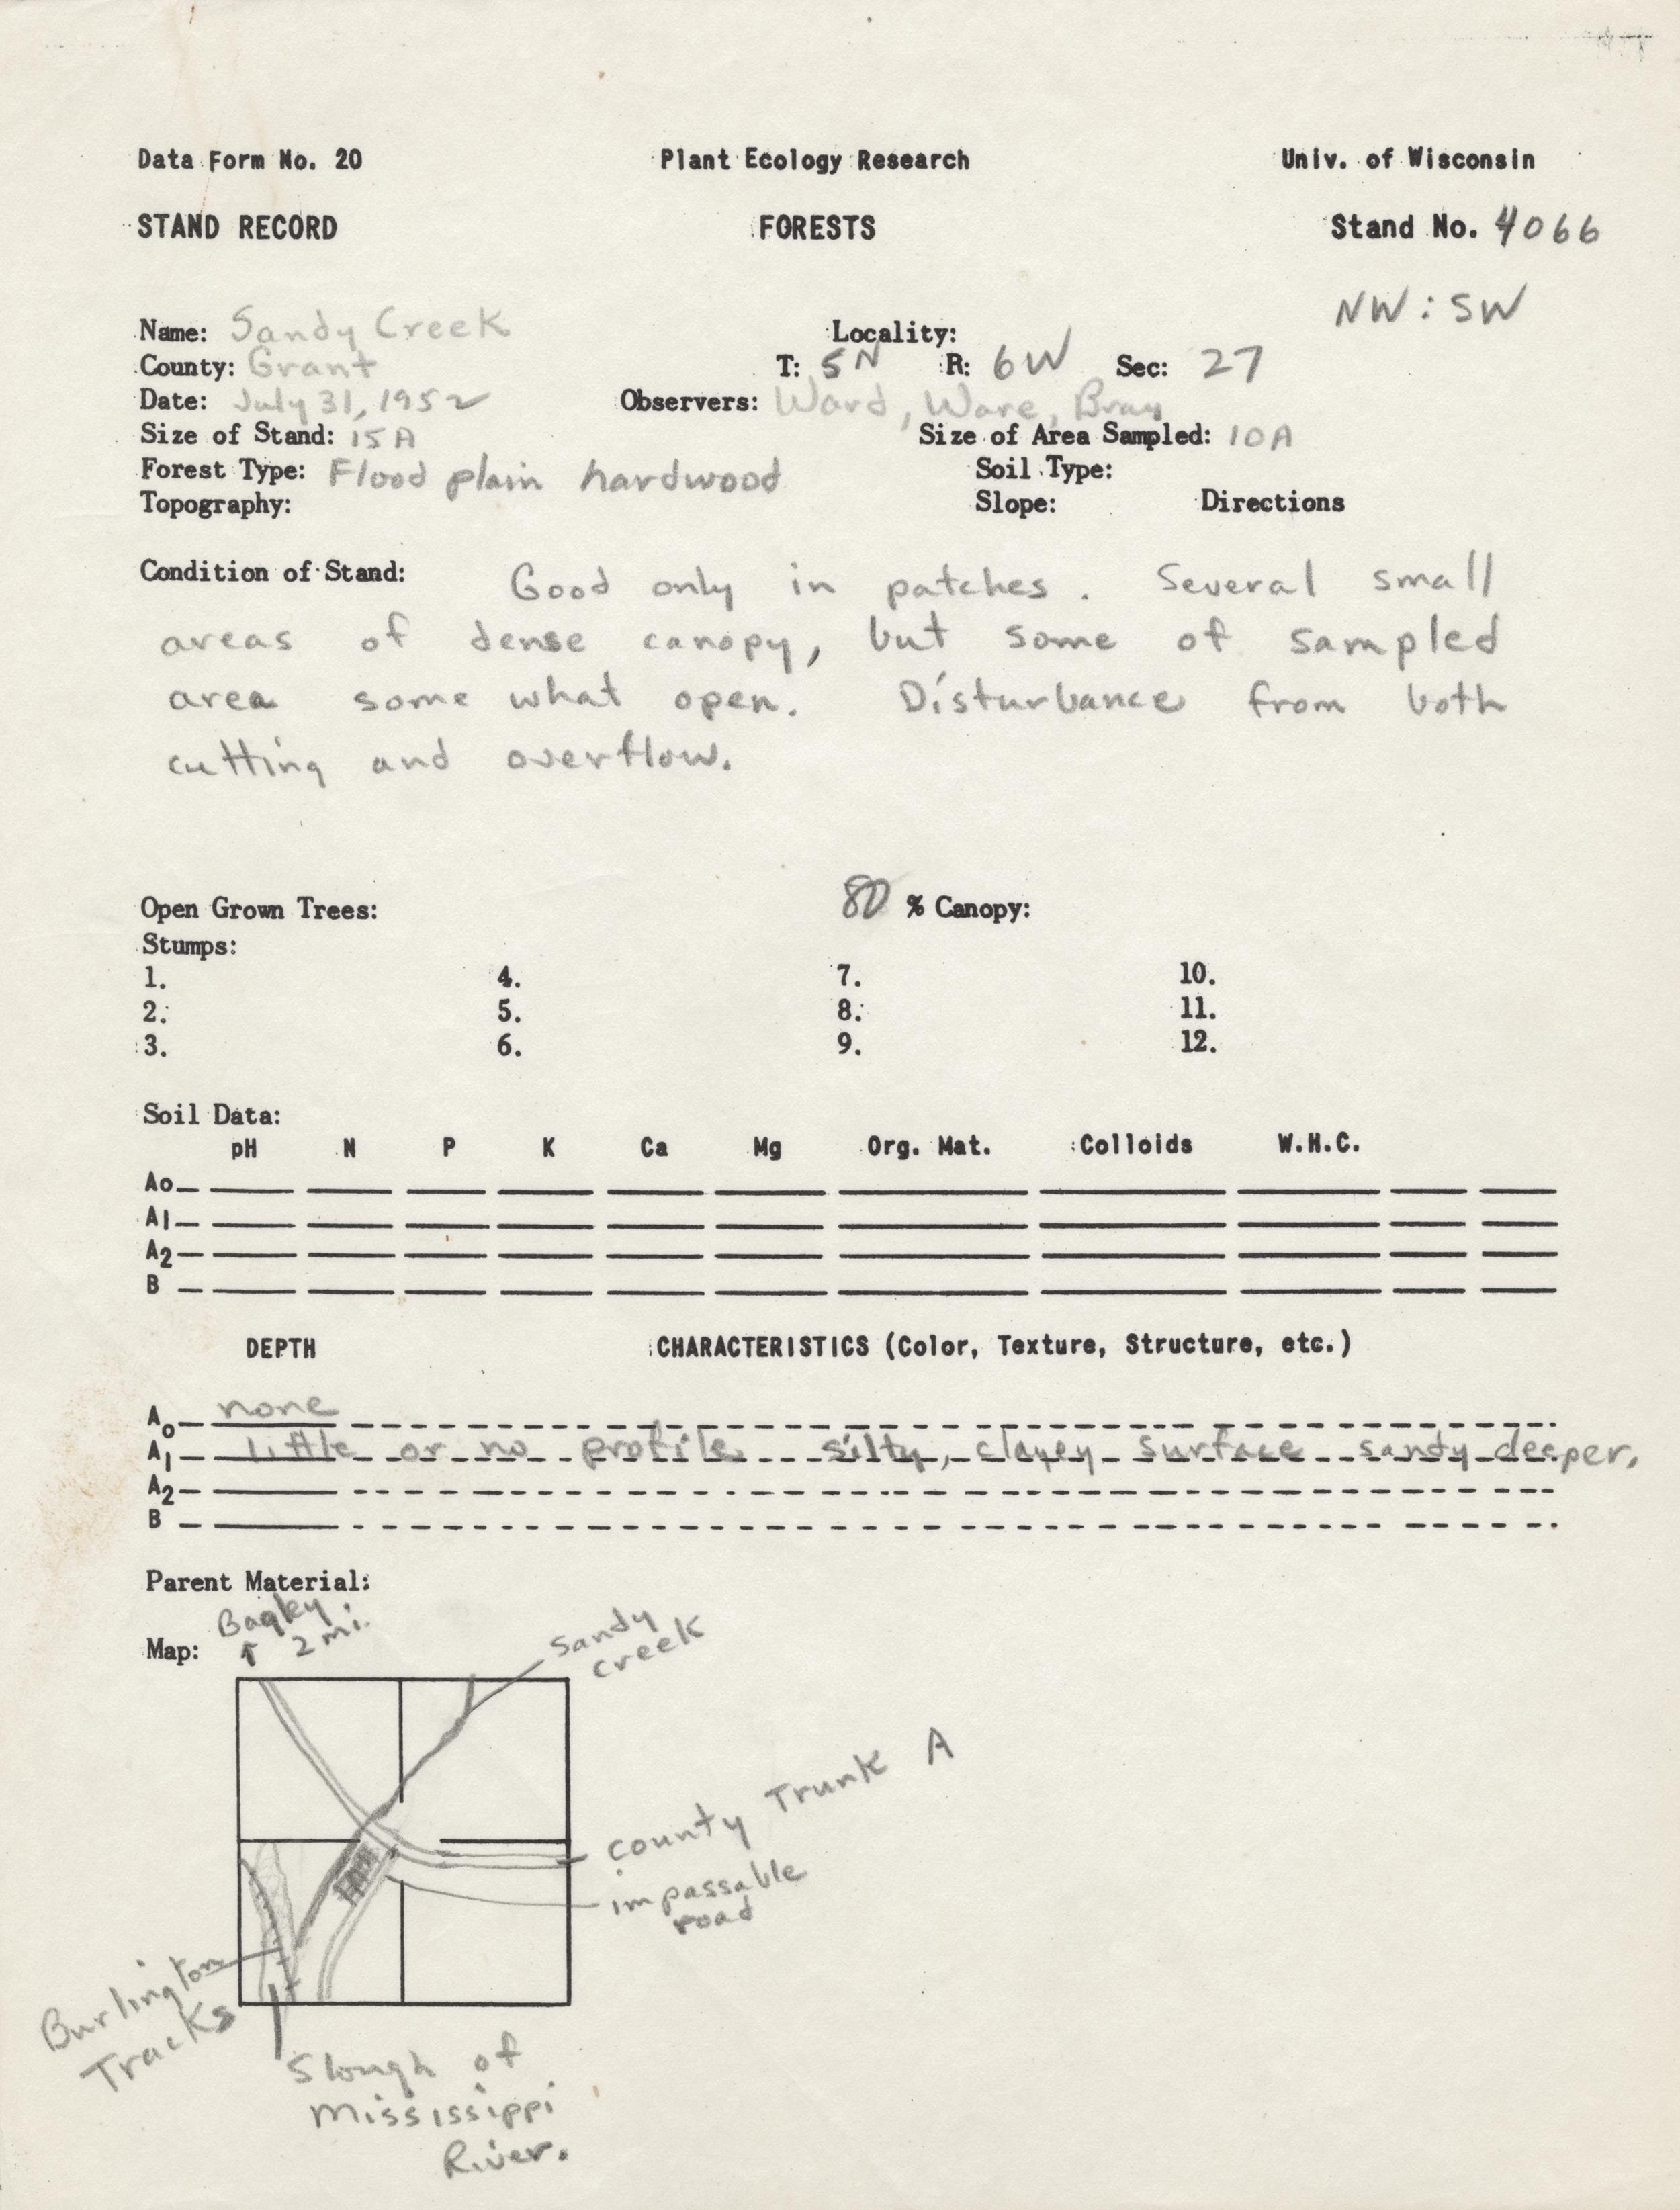 Data Form No. 20 Plant Ecology Research Univ. of Wisconsin
STAND RECORD FORESTS Stand No. 4066
NW : SW
Name: Sandy Creek Locality:
County: Grant T: 5N R: 6W Sec: 27
Date: July 31, 1952 Observers: Ward, Ware, Bray
Size of Stand: 15A Size of Area Sampled: 10A
Forest Type: Flood plain hardwood Soil Type:
Topography: Slope: Directions
Condition of Stand: Good only in patches. Several small
areas of dense canopy, but some of sampled
area some what open. Disturbance from both
cutting and overflow.
Open Grown Trees: 80 % Canopy:
Stumps:
1. 4. 7. 10.
2. 5. 8. 11.
3. 6. 9. 12.
Soil Data:
pH N P K Ca Mg Org. Mat. Colloids W.H.C.
Ao
A1
A2
B
DEPTH CHARACTERISTICS (Color, Texture, Structure, etc.)
Ao none
A1 little or no profile silty, clayey surface sandy deeper.
A2
B
Parent Material:
Map: Bagley
↑ 2 mi.
Sandy
creek
county Trunk A
impassable
road
Burlington
Tracks
Slough of
Mississippi
River.